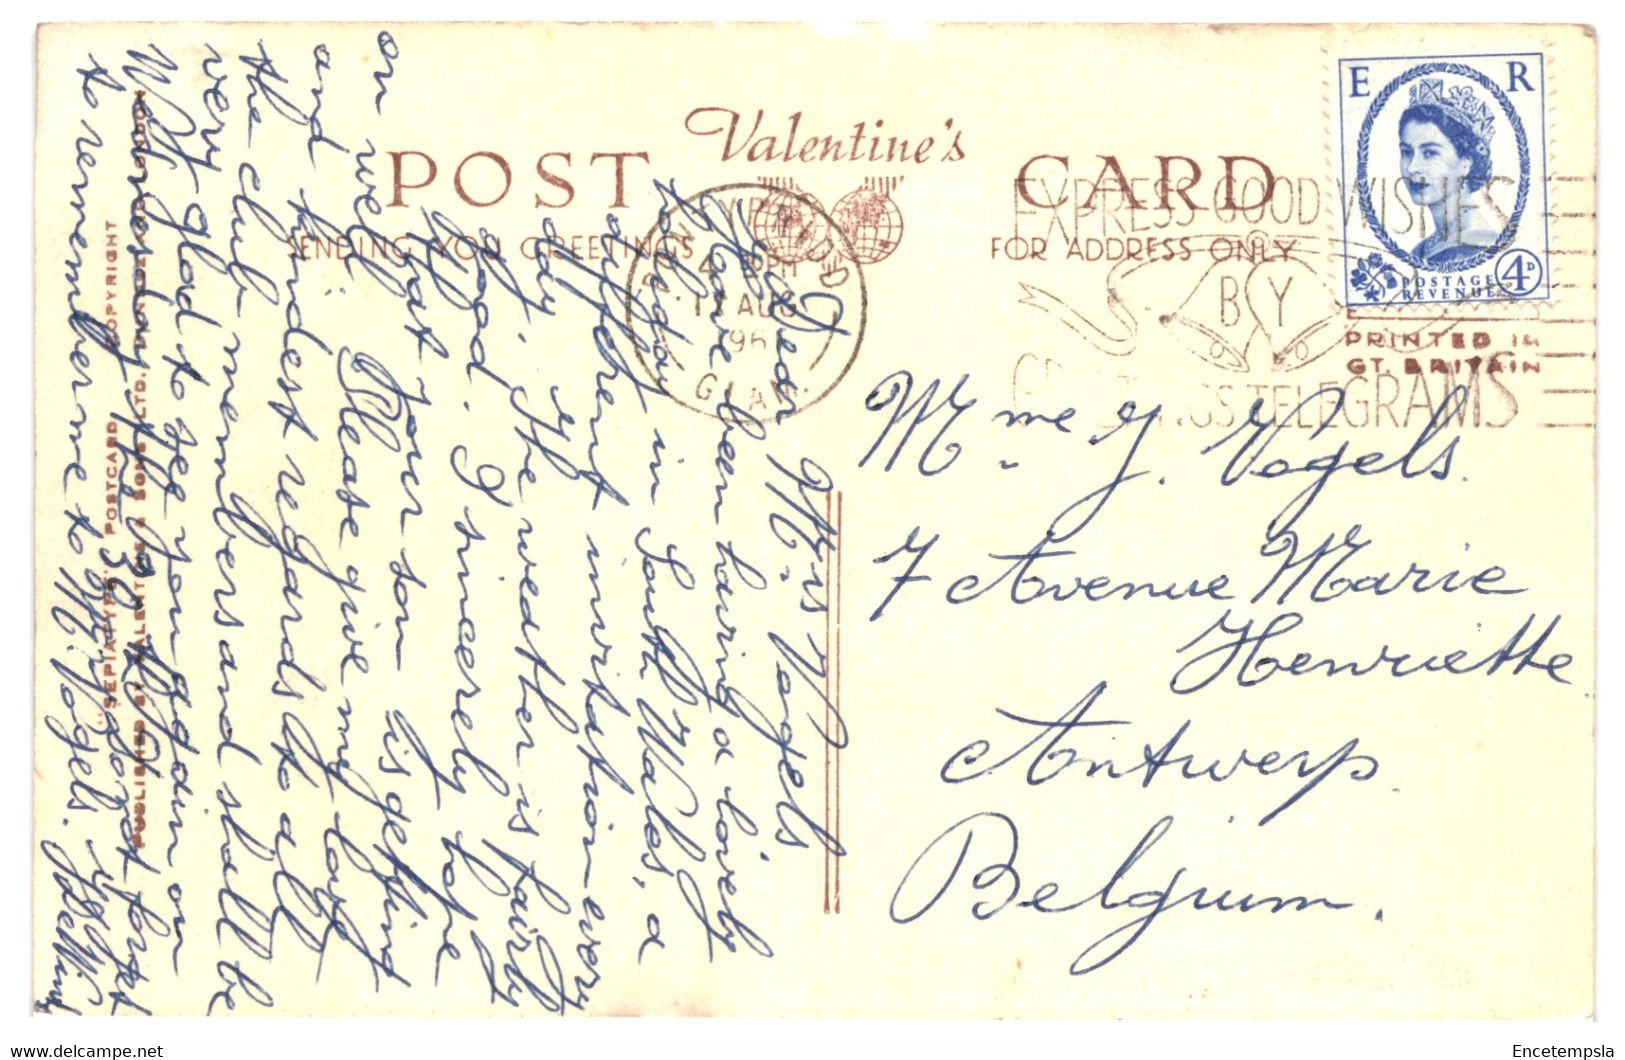 Valentine's
POST CARD
SENDING YOU GREETINGS
FOR ADDRESS ONLY
E R
POSTAGE
REVENUE
4D
PRINTED IN
GT. BRITAIN
EXPRESS GOOD WISHES
BY
GREETINGS TELEGRAMS
PONTYPRIDD
AUG
196
GLAM.
Mme J. Vogels.
7 Avenue Marie
Henriette
Antwerp.
Belgium.
Dear Mrs Vogels
I have been having a lovely
holiday in South Wales, a
different invitation every
day. The weather is fairly
good. I sincerely hope
that your son is getting
on well. Please give my love
and kindest regards to all
the club members and shall be
very glad to see you again on
Wednesday the 30
to remember me to M. Vogels.
"SEPIATYPE" POSTCARD COPYRIGHT
PUBLISHED BY VALENTINE & SONS LTD. DUNDEE AND LONDON
Encetempsla